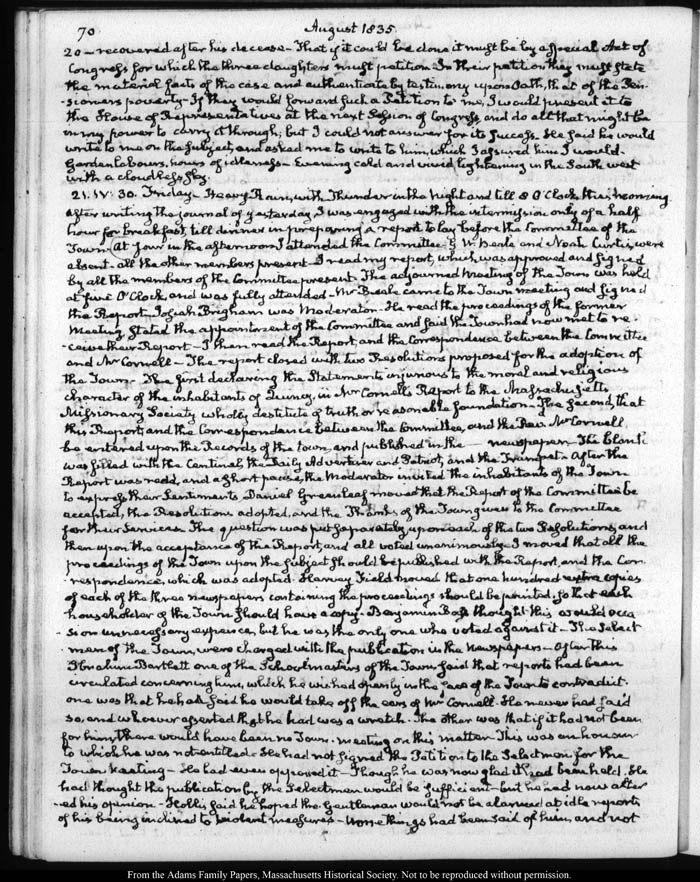 70
August 1835.
20 – recovered after his decease – That if it could be done it must be by a special Act of
Congress for which the three daughters must petition – In their petition they must state
the material facts of the case and authenticate by testimony upon Oath, that of the Pen-
-sioners poverty – If they would forward such a Petition to me, I would present it to
the House of Representatives at the next Session of Congress, and do all that might be
in my power to carry it through; but I could not answer for its success. He said he would
write to me on the subject, and asked me to write to him, which I assured him I would.
Garden labours, hours of idleness – Evening cold and vivid lightening in the South west
with a cloudless sky.
21. IV: 30. Friday. Heavy Rain, with Thunder in the Night and till 8 O'Clock this morning.
After writing the journal of yesterday, I was engaged with the intermission only of a half
hour for breakfast, till dinner in preparing a report to lay before the Committee of the
Town. At four in the afternoon I attended the Committee. G. W. Beale and Noah Curtis, were
absent – all the other members present – I read my report, which was approved and signed
by all the members of the Committee present. The adjourned Meeting of the Town was held
at five O'Clock, and was fully attended – Mr Beale came to the Town meeting and signed
the Report. Josiah Brigham was Moderator – He read the proceedings of the former
Meeting, stated the appointment of the Committee and said the Town had now met to re-
-ceive their Report – I then read the Report, and the Correspondence between the Committee
and Mr Cornell – The report closed with two Resolutions proposed for the adoption of
the Town – The first declaring the Statements injurious to the moral and religious
character of the inhabitants of Quincy, in Mr Cornell's Report to the Massachusetts
Missionary Society wholly destitute of truth or reasonable foundation – The second, that
this Report, and the Correspondence between the Committee, and the Revd. Mr Cornell,
be entered upon the Records of the town, and published in the newspapers – The blank
was filled with the Centinel, the Daily Advertiser and Patriot, and the Trumpet – After the
Report was read, and a short pause, the Moderator invited the inhabitants of the Town
to express their Sentiments. Daniel Greenleaf moved that the Report of the Committee be
accepted, the Resolutions adopted, and the Thanks of the Town given to the Committee
for their Services. The question was put separately upon each of the two Resolutions, and
then upon the acceptance of the Report, and all voted unanimously – I moved that all the
proceedings of the Town upon the subject should be published with the Report, and the Cor-
-respondence, which was adopted. Harvey Field moved that one hundred extra copies
of each of the three newspapers containing the proceedings should be printed, so that each
householder of the Town should have a copy – Benjamin Bass thought this would occa
-sion unnecessary expence, but he was the only one who voted against it – The Select
-men of the Town, were charged with the publication in the Newspapers – After this
Ibrahim Bartlett one of the Schoolmasters of the Town, said that reports had been
circulated concerning him, which he wished openly in the face of the Town to contradict.
one was that he had said he would take off the ears of Mr Cornell. He never had said
so, and whoever asserted that he had was a wretch. The other was that if it had not been
for him, there would have been no Town-meeting on this matter. This was an honour
to which he was not entitled. He had not signed the Petition to the Selectmen for the
Town Meeting – He had even opposed it – Though he was now glad it had been held. He
had thought the publication by the Selectmen would be sufficient – but he had now alter
-ed his opinion. – Hollis said he hoped the Gentleman would not be alarmed at idle reports
of his being inclined to violent measures – Worse things had been said of him, and not
From the Adams Family Papers, Massachusetts Historical Society. Not to be reproduced without permission.